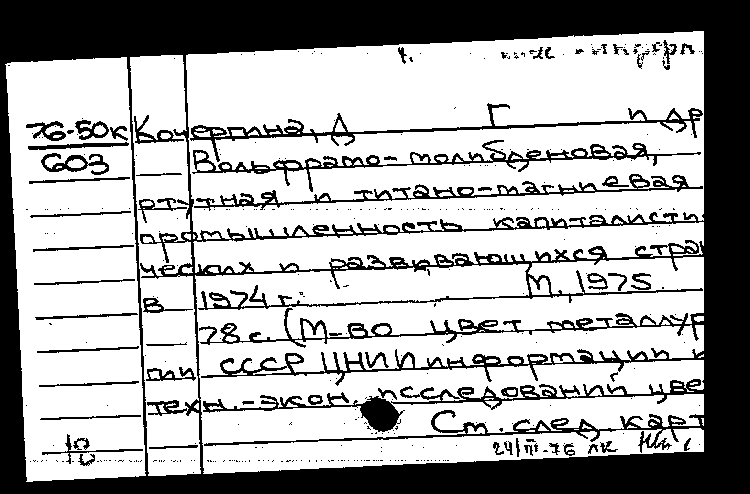 76-50к Кочергина, Д Г и др
603 Вольфрамо-молибденовая,
ртутная и титано-магниевая
промышленность капиталисти
ческих и развивающихся стран
в 1974 г. М., 1975.
78 с. (М-во цвет. металлур
гии СССР. ЦНИИ информации и
техн.-экон. исследований цве
Ст. след. карт
24/III-76 лк